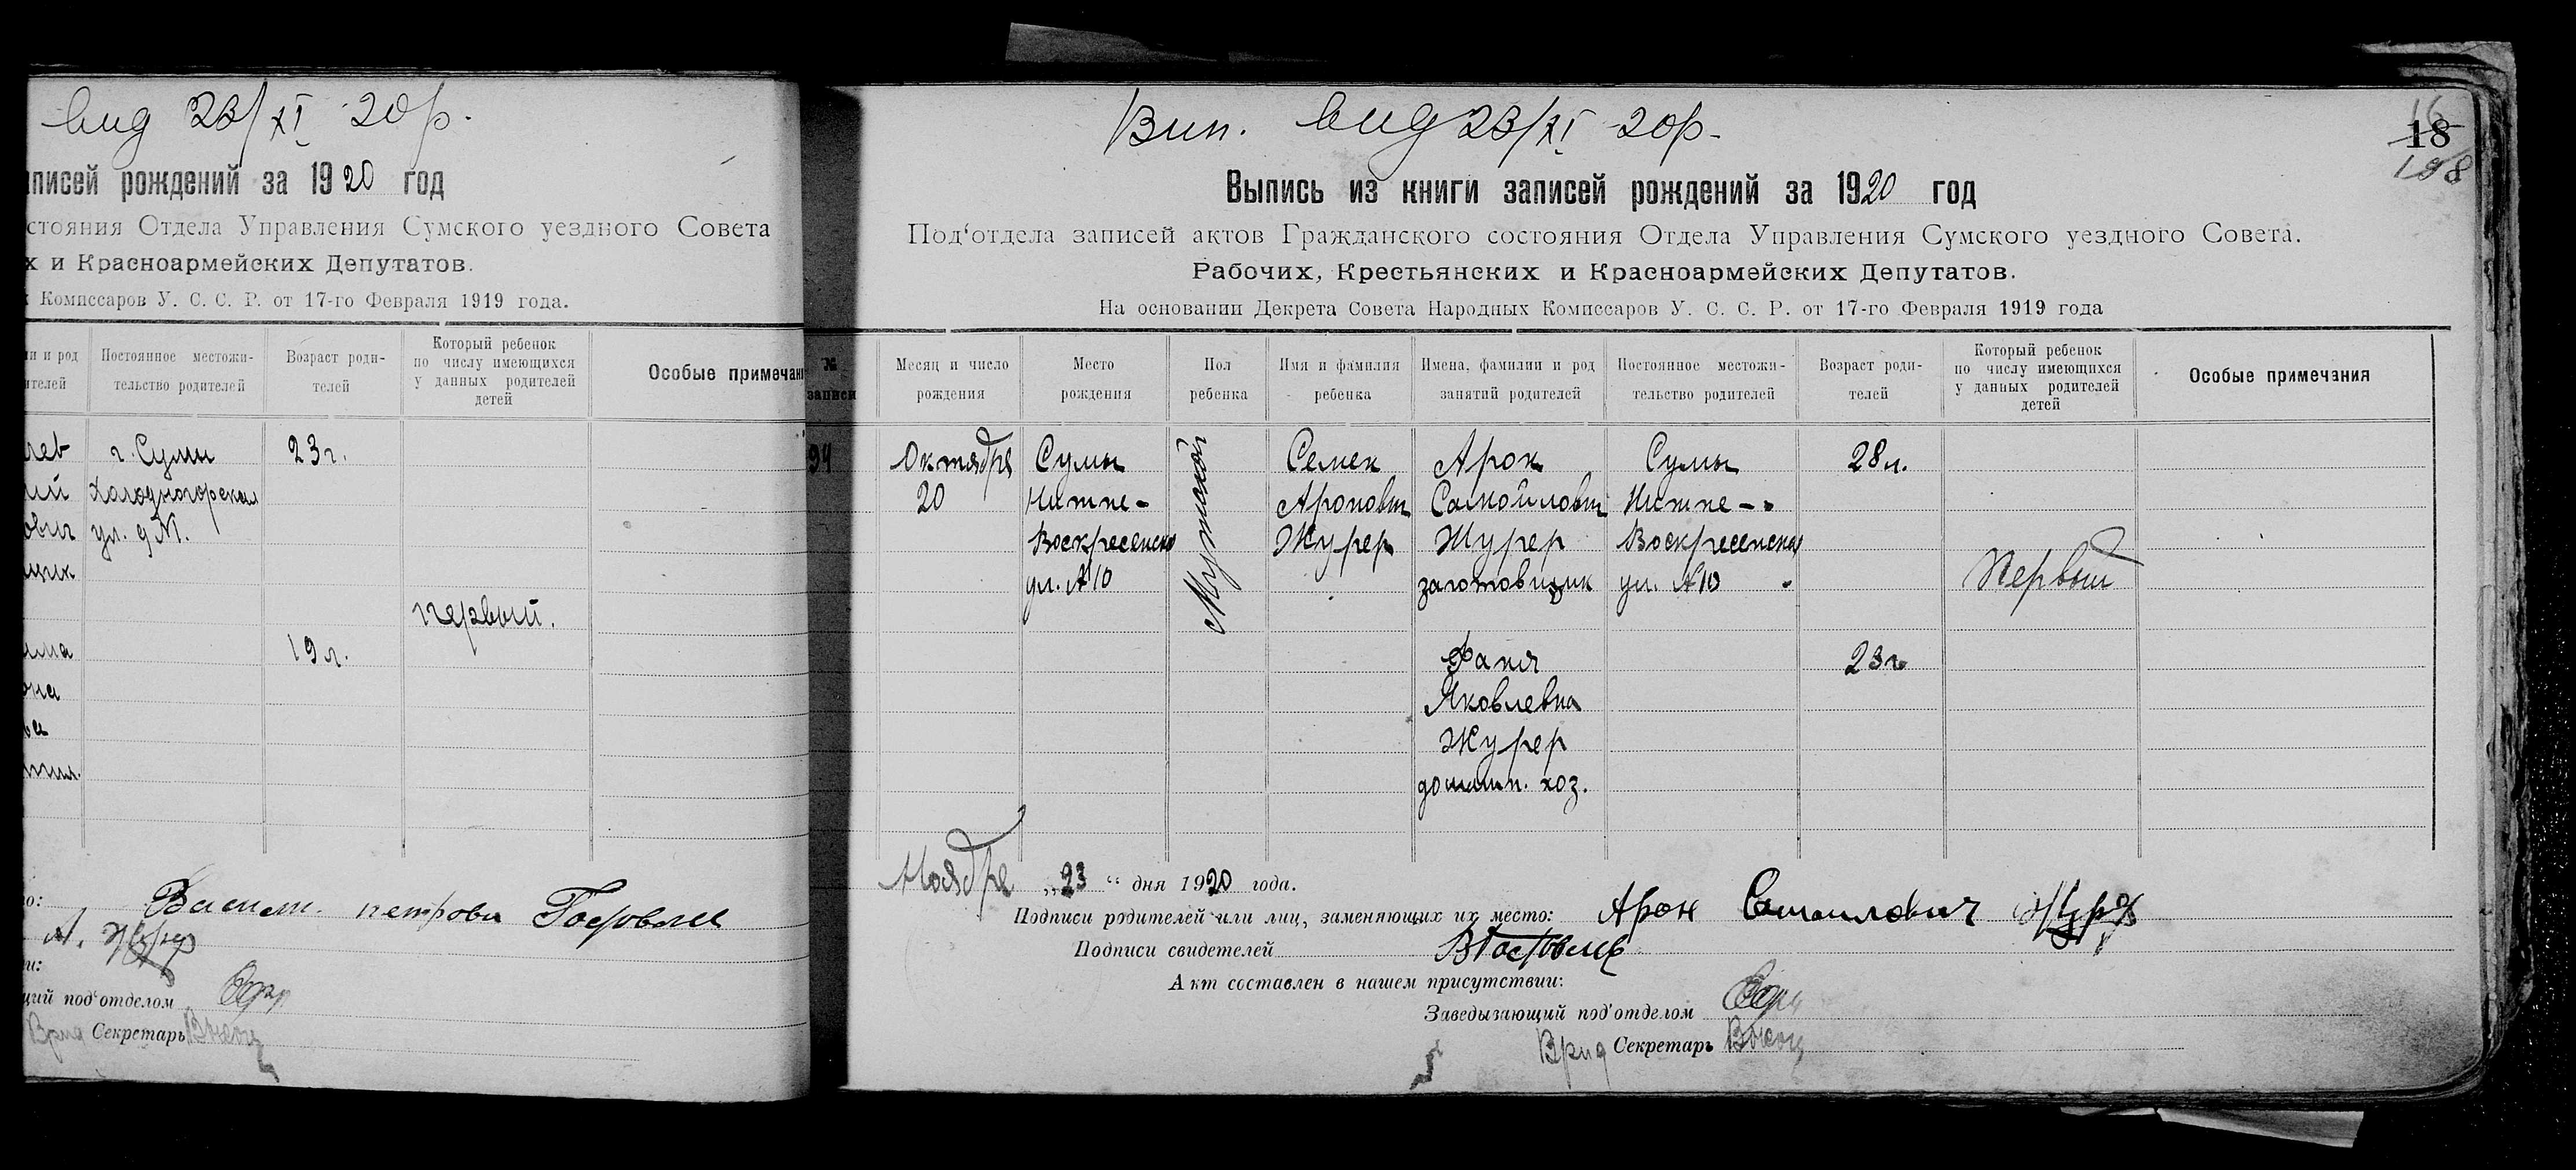 вид 23/XI 20р.
писей рождений за 1920 год
стояния Отдела Управления Сумского уездного Совета
х и Красноармейских Депутатов.
Комиссаров У. С. С. Р. от 17-го Февраля 1919 года.
и род
ителей
Постоянное местожи-
тельство родителей
Возраст роди-
телей
Который ребенок
по числу имеющихся
у данных родителей
детей
Особые примечан
г. Сумы
Холодногорская
ул.
23 г.
первый.
19 л.
Василий Петрович
щий под'отделом
Врид Секретарь
Вип. вид 23/XI 20р.
16
18
198
Выпись из книги записей рождений за 1920 год
Под'отдела записей актов Гражданского состояния Отдела Управления Сумского уездного Совета.
Рабочих, Крестьянских и Красноармейских Депутатов.
На основании Декрета Совета Народных Комиссаров У. С. С. Р. от 17-го Февраля 1919 года
№
записи
Месяц и число
рождения
Место
рождения
Пол
ребенка
Имя и фамилия
ребенка
Имена, фамилии и род
занятий родителей
Постоянное местожи-
тельство родителей
Возраст роди-
телей
Который ребенок
по числу имеющихся
у данных родителей
детей
Особые примечания
94
Октября
20
Сумы
Нижне-
Воскресенская
ул. №10
Мужской
Семен
Аронович
Журер
Арон
Самойлович
Журер
заготовщик
Фаня
Яковлевна
Журер
домашн. хоз.
Сумы
Нижне-
Воскресенская
ул. №10
28 л.
23 г.
Первый
Ноября „23“ дня 1920 года.
Подписи родителей или лиц, заменяющих их место: Арон Самойлович Журер
Подписи свидетелей
Акт составлен в нашем присутствии:
Заведывающий под'отделом
Врид Секретарь